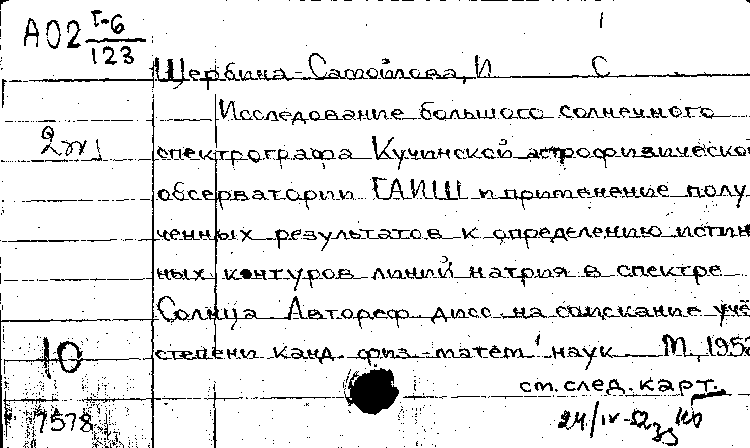 А02 I-6
123
Щербина-Самойлова, И С
Исследование большого солнечного
2эк
спектрографа Кучинской астрофизическо
обсерватории ГАИШ и применение полу
ченных результатов к определению истин
ных контуров линий натрия в спектре
Солнца Автореф дисс на соискание учё
степени канд. физ-матем наук М, 1952
10
см. след. карт.
7578
24/IV-52